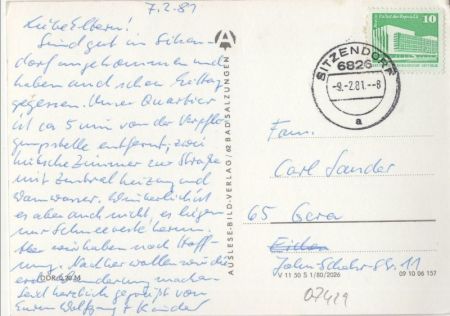 7.2.81
Liebe Eltern!
Sind gut in Sitzen-
dorf angekommen und
haben auch schon Mittag
gegessen. Unser Quartier
ist ca 5 min von der Verpfle-
gungsstelle entfernt, zwei
hübsche Zimmer zur Straße
mit Zentralheizung und
Warmwasser. Winterlich ist
es aber auch nicht, es liegen
nur Schneereste herum.
Aber wir haben noch Hoff-
nung. Nachher wollen wir die
erste Wanderung machen.
Seid herzlich gegrüßt von
Euren Wolfgang + Kinder
DDR 0,20 M
AUSLESE-BILD-VERLAG/62 BAD SALZUNGEN
SITZENDORF
6826
-9.-2.81.--8
a
10
Fam.
Carl Sander
65 Gera
John-Schehr-Str. 11
V 11 50 S 1/80/2026
09 10 06 157